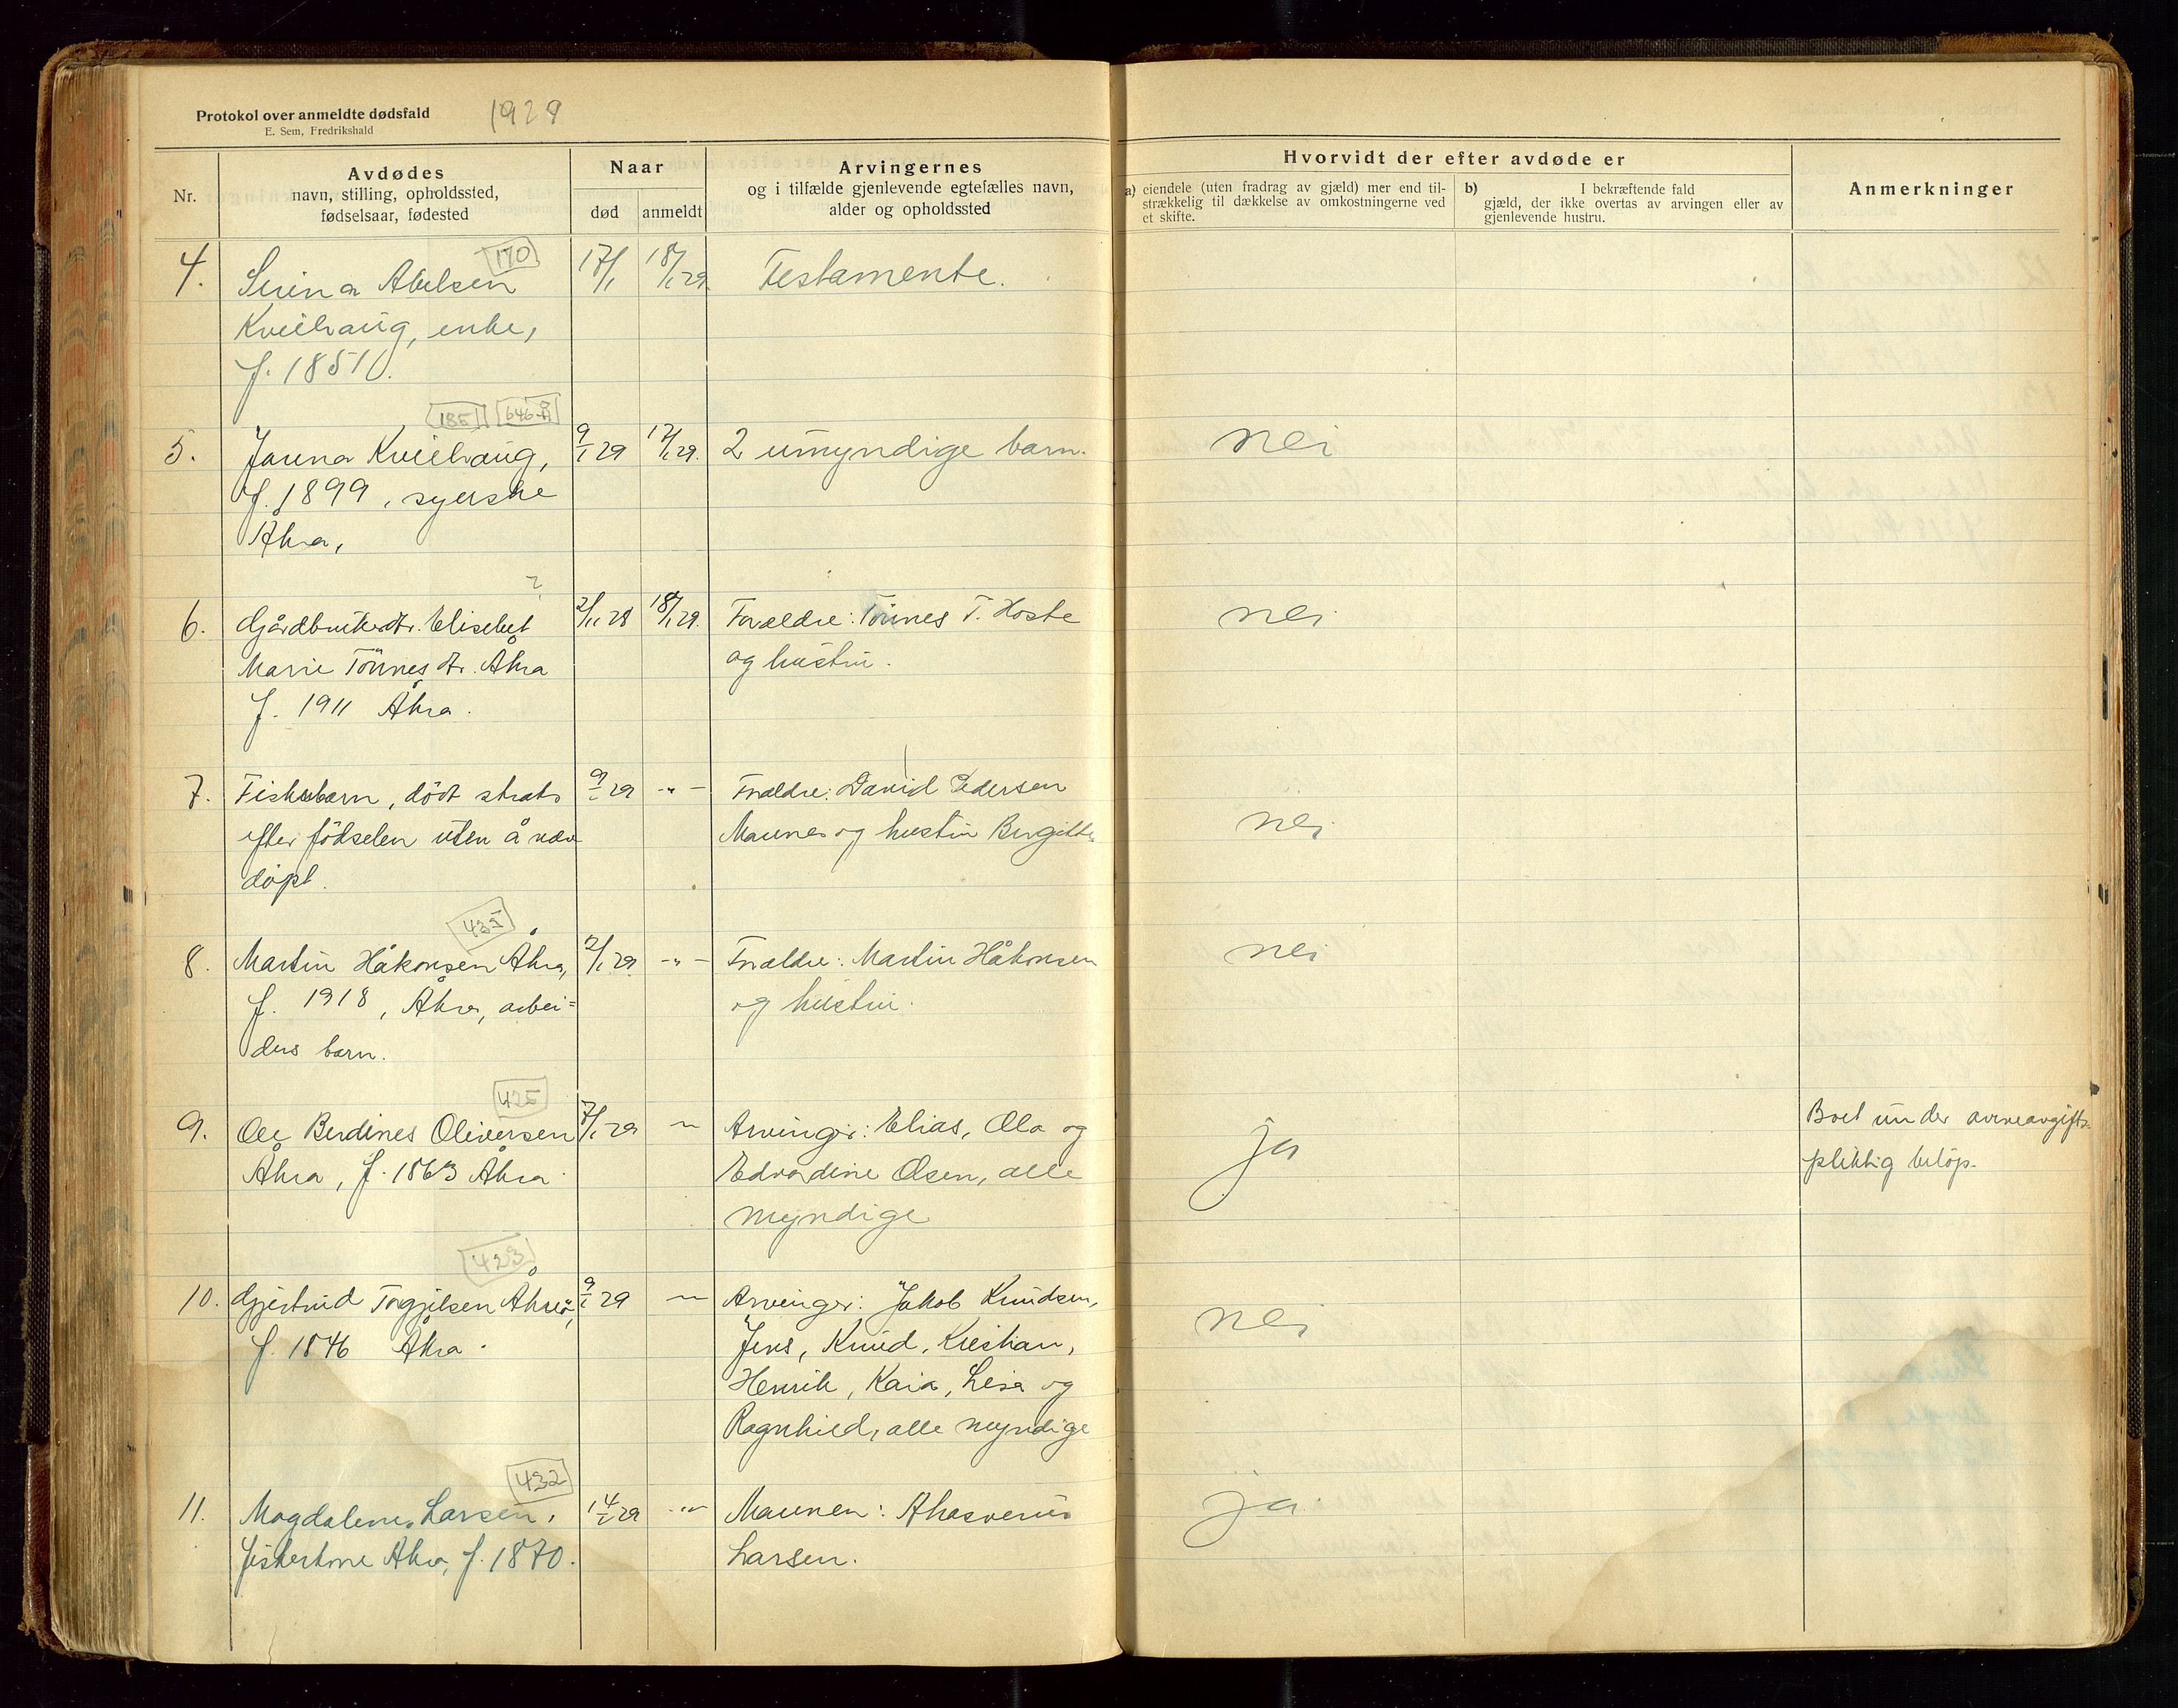 Protokol over anmeldte dødsfald
E. Sem, Fredrikshald
1929
Nr.
Avdødes
navn, stilling, opholdssted,
fødselsaar, fødested
Naar
død
anmeldt
Arvingernes
og i tilfælde gjenlevende egtefælles navn,
alder og opholdssted
Hvorvidt der efter avdøde er
a) eiendele (uten fradrag av gjæld) mer end til-
strækkelig til dækkelse av omkostningerne ved
et skifte.
b) I bekræftende fald
gjæld, der ikke overtas av arvingen eller av
gjenlevende hustru.
Anmerkninger
170
4. Serina Abelsen 17/1 18/1 29. Testamente.
Kveilhaug, enke,
f. 1851.
185 646
5. Jauna Kveilhaug, 9/1 29 17/1 29. 2 umyndige barn. nei
f. 1899, syerske
Åkra,
?
6. Gårdbrukerdtr. Elisebet 2/11 28 18/1 29. Forældre: Tönnes T. Hoste nei
Marie Tönnesdtr. Åkra og hustru.
f. 1911 Åkra.
7. Fiskerbarn, dödt straks 9/1 29 -"- Forældre: David Pedersen
efter födselen uten å være Maunes og hustru Birgitte nei
döpt.
435
8. Martin Håkonsen Åkra, 2/1 29 -"- Forældre: Martin Håkonsen nei
f. 1918, Åkra, arbei= og hustru.
ders barn.
425
9. Ole Berdines Oliversen 7/1 29 -"- Arvinger: Elias, Ola og ja Boet under arveavgifts-
Åkra, f. 1863 Åkra. Edvardine Olsen, alle pliktig beløp.
myndige
423
10. Gjertrud Torgjilsen Åkra, 9/1 29 -"- Arvinger: Jakob Knudsen, nei
f. 1846 Åkra. Jens, Knud, Kristian,
Henrik, Kaia, Lisa og
Ragnhild, alle myndige
432
11. Magdalene Larsen, 14/1 29 -"- Mannen: Ahasverus ja.
fiskerkone Åkra, f. 1870. Larsen.